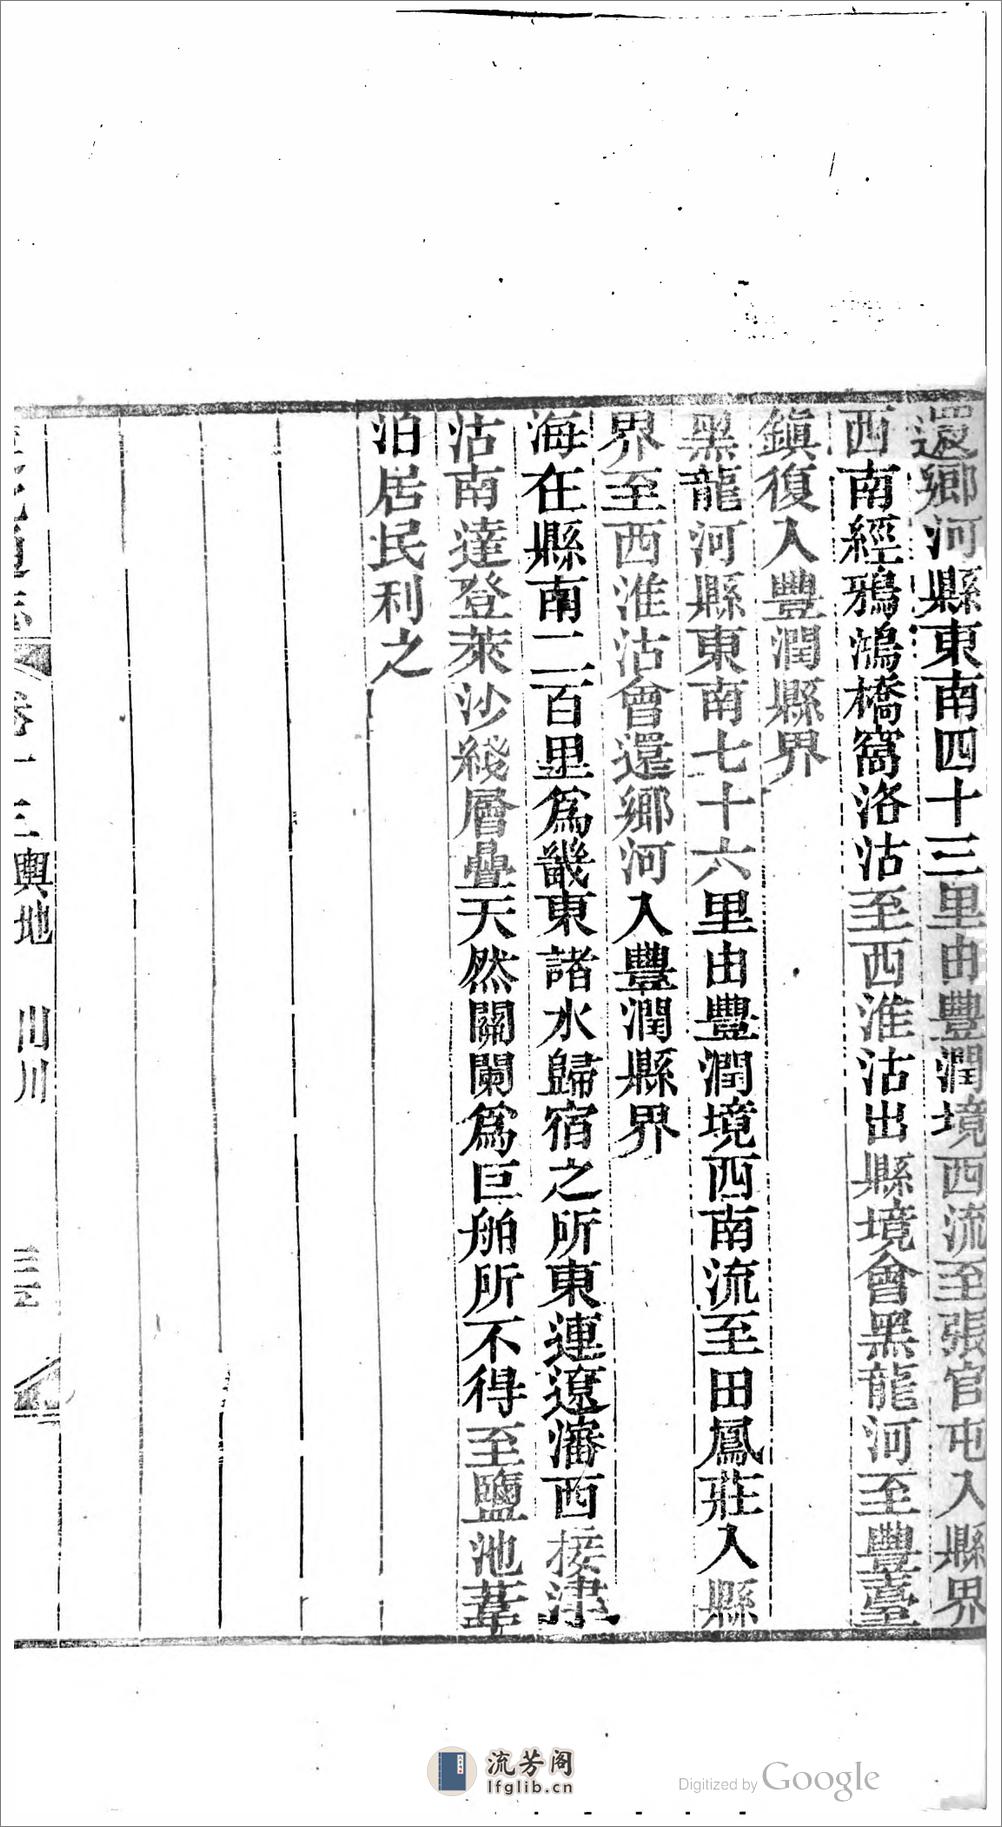 還鄉河縣東南四十三里由豐潤境西流至張官屯入縣界
西南經鴉鴻橋窩洛沽至西淮沽出縣境會黑龍河至豐臺
鎮復入豐潤縣界
黑龍河縣東南七十六里由豐潤境西南流至田鳳莊入縣
界至西淮沽會還鄉河入豐潤縣界
海在縣南二百里爲畿東諸水歸宿之所東連遼瀋西接津
沽南達登萊沙綫層疊天然關闌爲巨舶所不得至鹽池葦
泊居民利之
卷十三輿地 山川
流芳阁
lfglib.cn
Digitized by Google